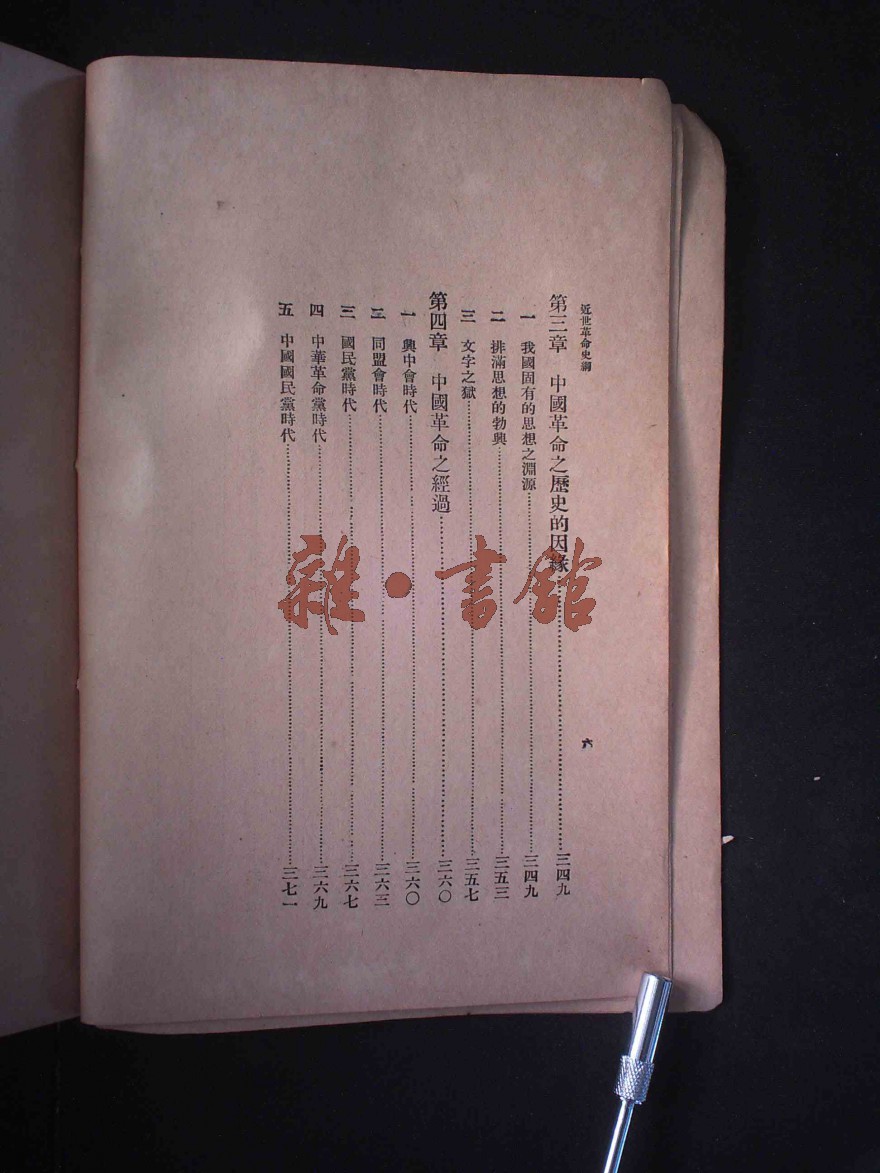 近世革命史綱
六
第三章　中國革命之歷史的因緣……三四九
一　我國固有的思想之淵源……三四九
二　排滿思想的勃興……三五三
三　文字之獄……三五七
第四章　中國革命之經過……三六〇
一　興中會時代……三六〇
二　同盟會時代……三六三
三　國民黨時代……三六七
四　中華革命黨時代……三六九
五　中國國民黨時代……三七一
雜・書館